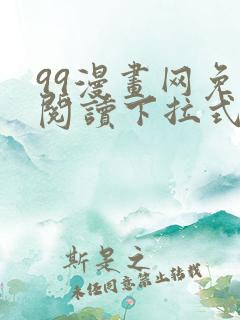 99漫畫网免
閱讀下拉式
斯是之
未经同意禁止转载